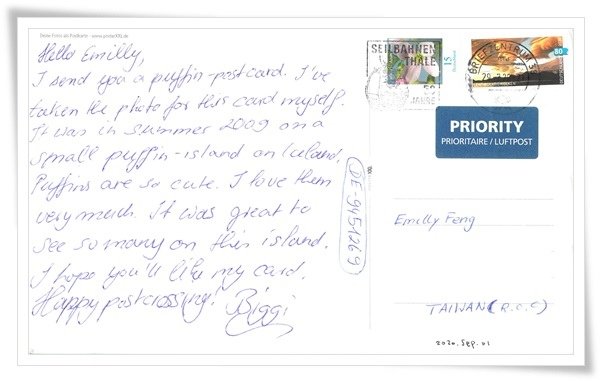 Deine Fotos als Postkarte - www.posterXXL.de
Hello Emilly,
I send you a puffin-postcard. I've
taken the photo for this card myself.
It was in summer 2009 on a
small puffin-island on Iceland.
Puffins are so cute. I love them
very much. It was great to
see so many on this island.
I hope you'll like my card.
Happy postcrossing! Biggi
DE-9451269
SEILBAHNEN
THALE
50
JAHRE
15
BRIEFZENTRUM
80
PRIORITY
PRIORITAIRE / LUFTPOST
Emilly Feng
TAIWAN (R.O.C)
2020. Sep. 01